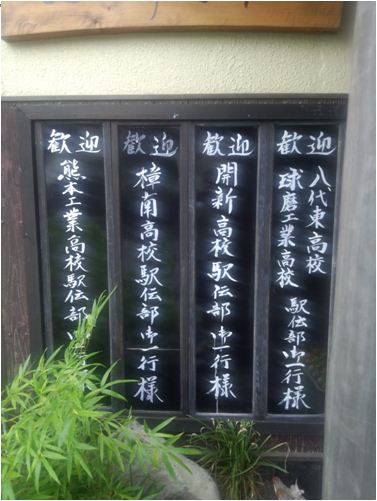 歓迎
八代東高校
球磨工業高校
駅伝部御一行様
歓迎
開新高校駅伝部御一行様
歓迎
樟南高校駅伝部御一行様
歓迎
熊本工業高校駅伝部御一行様